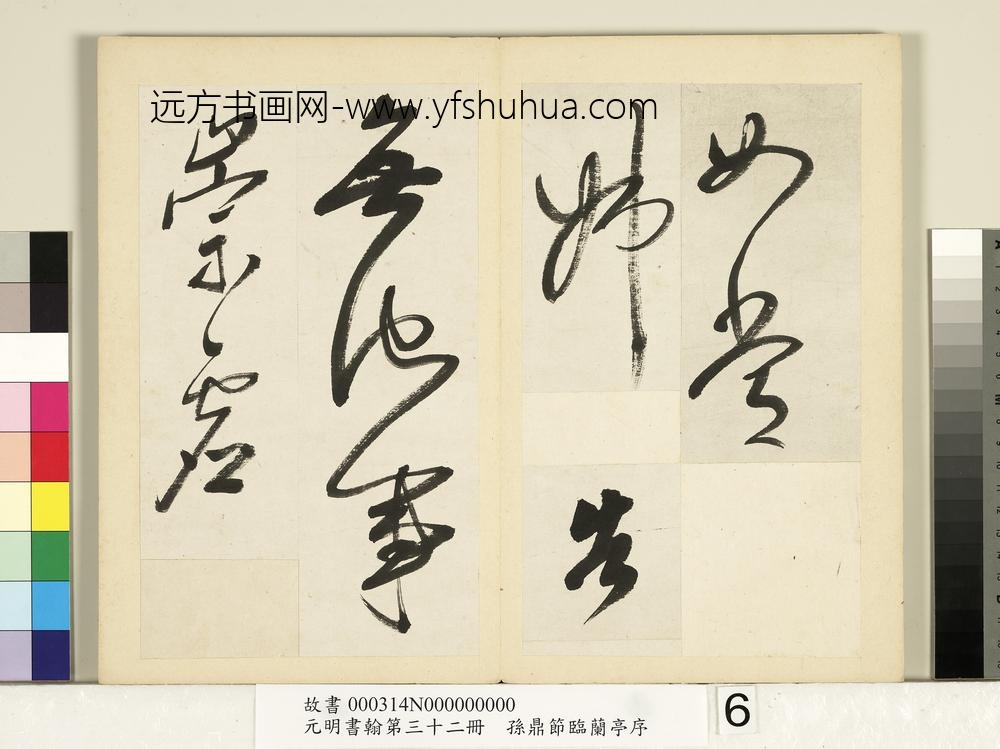 远方书画网-www.yfshuhua.com
如常
姊告
無他事
崇虛
故書 000314N000000000
元明書翰第三十二冊 孫鼎節臨蘭亭序
6